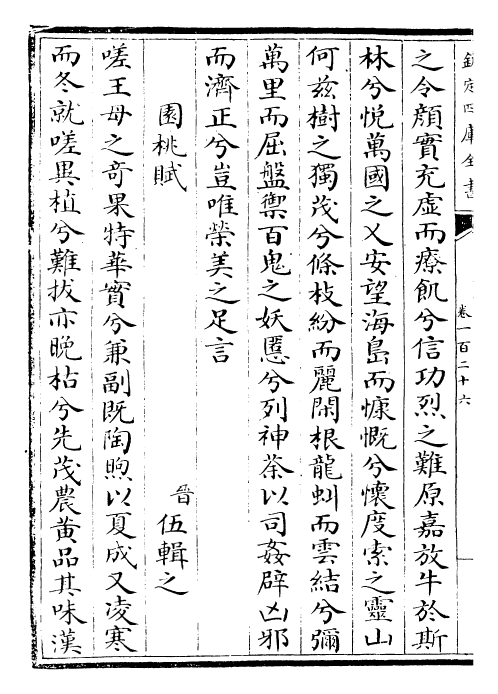 欽定四庫全書
卷一百二十六
之令顔實充虛而療飢兮信功烈之難原嘉放牛於斯
林兮悦萬國之乂安望海島而慷慨兮懷度索之靈山
何兹樹之獨茂兮條枝紛而麗閑根龍虯而雲結兮彌
萬里而屈盤禦百鬼之妖慝兮列神荼以司姦辟凶邪
而濟正兮豈唯榮美之足言
園桃賦
晉 伍輯之
嗟王母之奇果特華實兮兼副既陶煦以夏成又凌寒
而冬就嗟異植兮難拔亦晚枯兮先茂農黄品其味漢